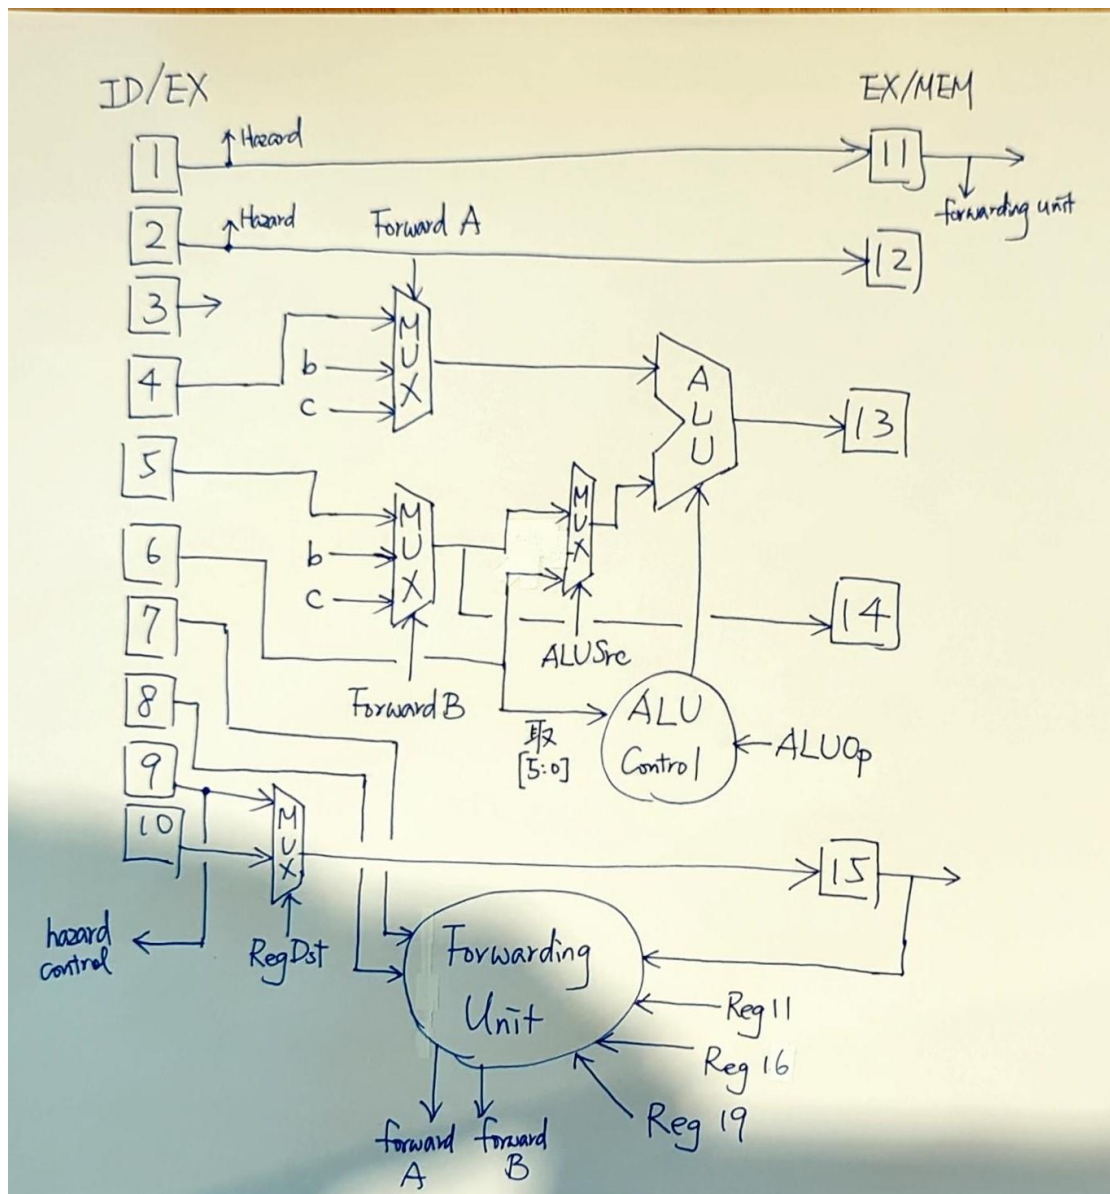 ID/EX
EX/MEM
1
Hazard
11
forwarding unit
2
Hazard
Forward A
12
3
4
b
c
MUX
ALU
13
5
b
c
MUX
MUX
6
14
7
ALUSrc
8
Forward B
取
[5:0]
ALU
Control
ALUOp
9
10
MUX
15
hazard
control
RegDst
Forwarding
Unit
Reg 11
Reg 16
Reg 19
forward
A
forward
B